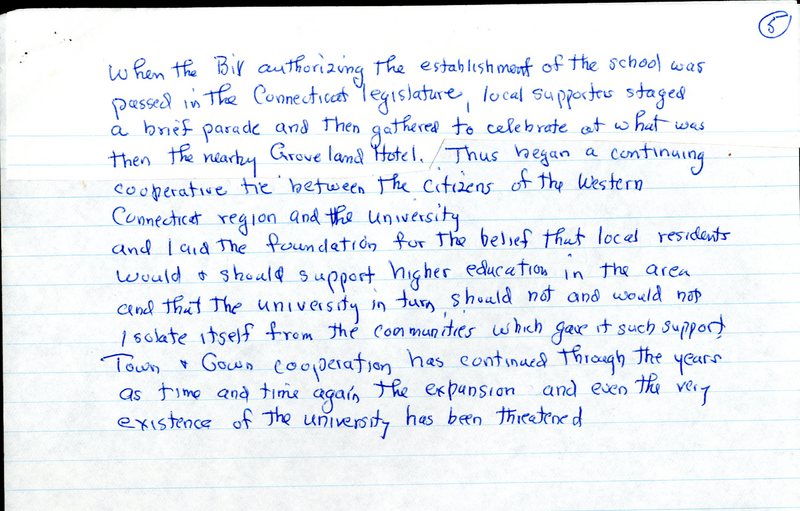 5
When the Bill authorizing the establishment of the school was
passed in the Connecticut legislature, local supporters staged
a brief parade and then gathered to celebrate at what was
then the nearby Groveland Hotel. / Thus began a continuing
cooperative tie between the citizens of the Western
Connecticut region and the University
and laid the foundation for the belief that local residents
would & should support higher education in the area
and that the university in turn, should not and would not
isolate itself from the communities which gave it such support
Town & Gown cooperation has continued through the years
as time and time again the expansion and even the very
existence of the university has been threatened